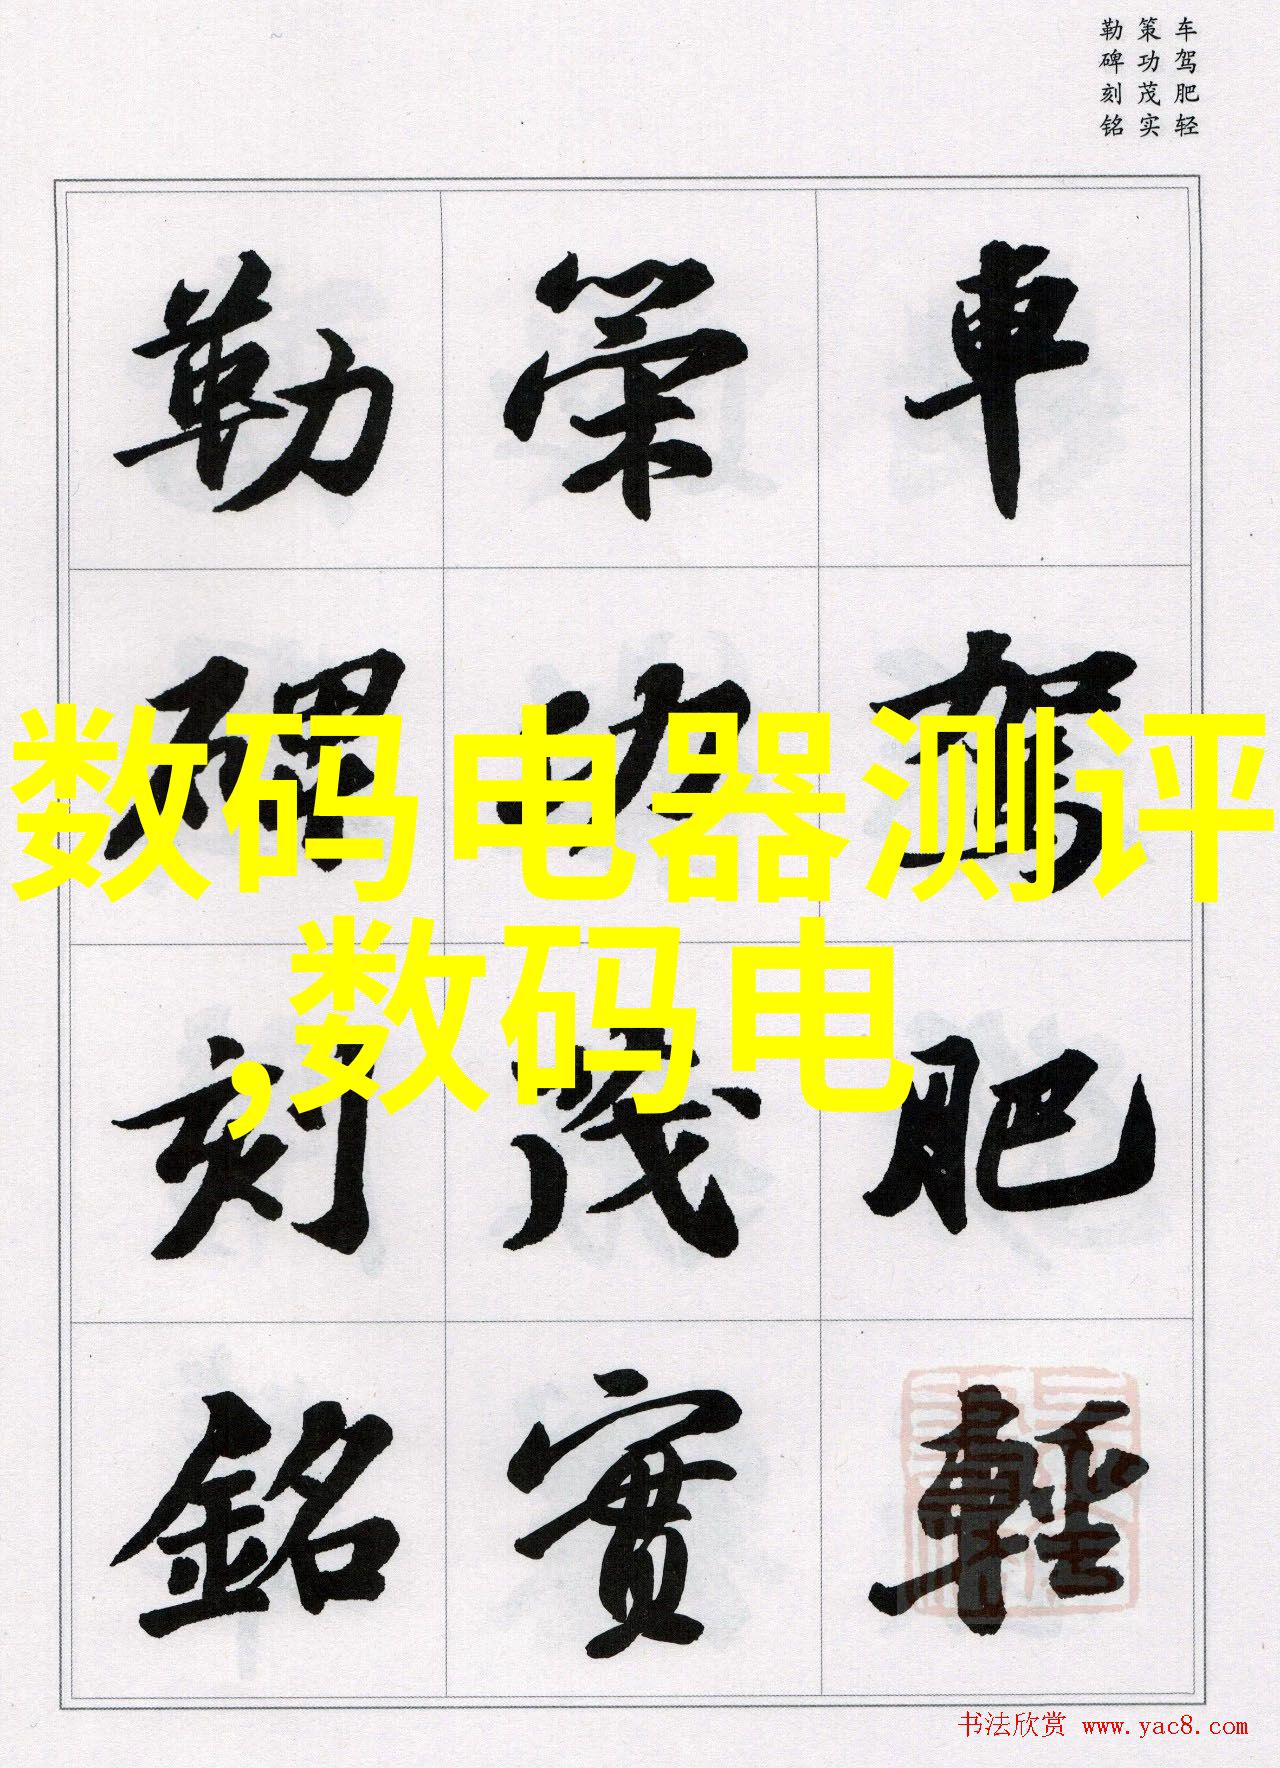 车驾肥轻
策功茂实
勒碑刻铭
車駕肥輕
策功茂實
勒碑刻銘
数码电器测评
,数码电
书法欣赏 www.yac8.com